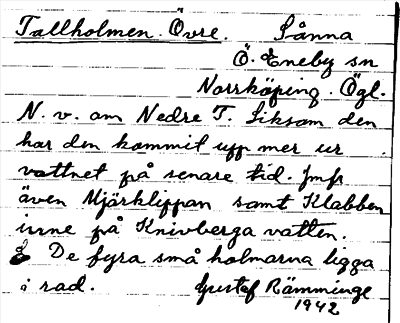 Tallholmen. Övre. Sånna
Ö. Eneby sn
Norrköping. Ögl.
N. v. om Nedre T. Liksom den
har den kommit upp mer ur
vattnet på senare tid. Jmfr
även Mjärklippan samt Klabben
inne på Knivberga vatten.
De fyra små holmarna ligga
i rad. Gustaf Rämminge
1942